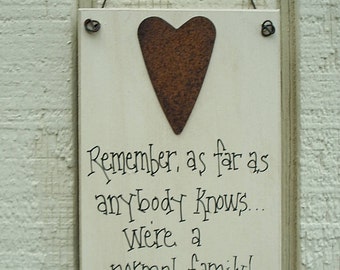 Remember, as far as
anybody knows...
we're a
normal family!